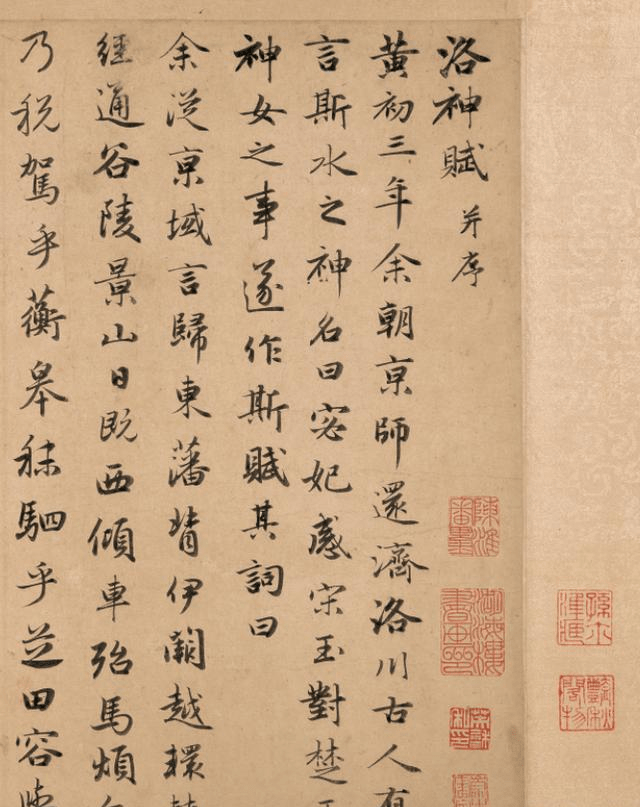 洛神賦 并序
黃初三年余朝京師還濟洛川古人有
言斯水之神名曰宓妃感宋玉對楚王
神女之事遂作斯賦其詞曰
余從京域言歸東藩背伊闕越轘轅
經通谷陵景山日既西傾車殆馬煩
乃稅駕乎蘅皋秣駟乎芝田容與